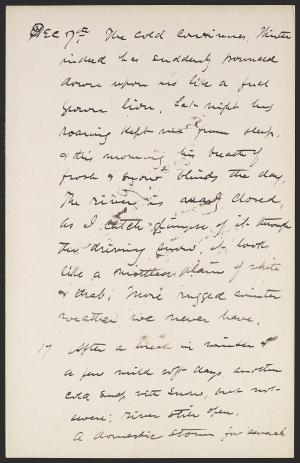 Dec 7th The cold continues, Winter
indeed has suddenly pounced
down upon us like a full
grown lion. Last night his
roaring kept me from sleep,
& this morning his breath of
frost & snow blinds the day.
The river is nearly closed,
as I catch glimpses of it through
the driving snow, it looks
like a mottled plain of white
& drab. More rugged winter
weather we never have.
17 After a break in winter &
a few mild soft days, another
cold snap with snow, but not
severe; river still open.
A domestic storm for several